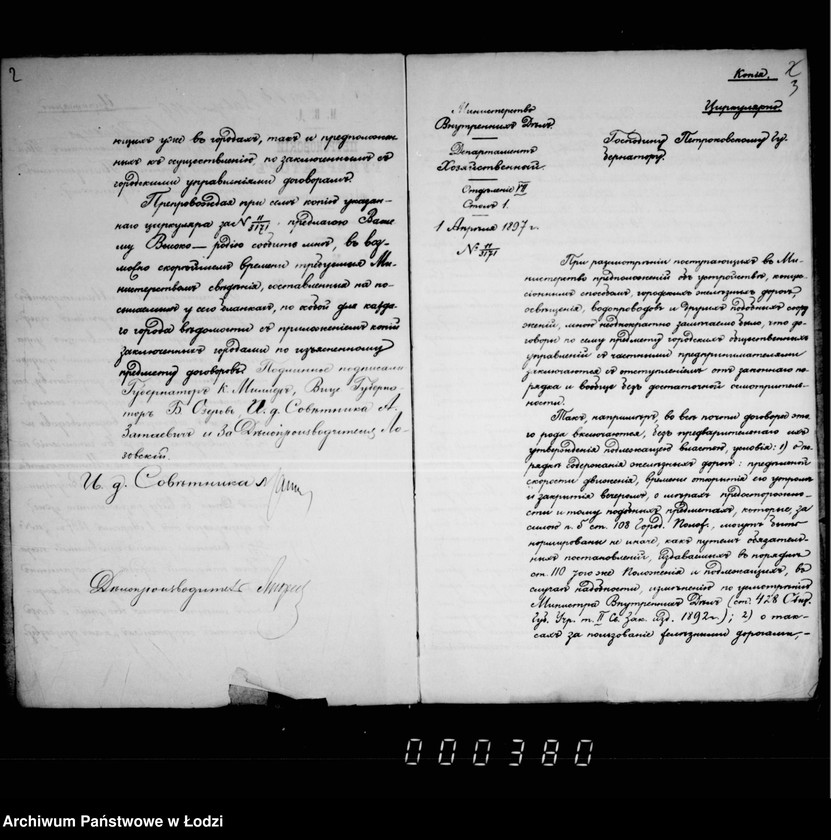 2
ющихъ уже въ городахъ, такъ и предположен-
ныхъ къ осуществленію по заключеннымъ съ
городскими управленіями договорамъ.
Препровождая при семъ копію указан-
наго циркуляра за № 11/3171 предлагаю Ваше
му Высоко— родію сообщить мнѣ, въ воз-
можно скорѣйшемъ времени требуемыя Ми-
нистерствомъ свѣдѣнія, составленныя на по-
сылаемыхъ у сего бланкахъ, по каждо
го города вѣдомости съ приложеніемъ копій
заключенныхъ городами по изъясненному
предмету договоровъ. Подлинное подписали
Губернаторъ К. Миллеръ, Вице Губерна-
торъ Б. Озеровъ, И. д. Совѣтника А.
и За Дѣлопроизводителя Ло-
зовскій.
И. д. Совѣтника
Дѣлопроизводитель
Копія.
3
Циркулярно
Министерство
Внутреннихъ Дѣлъ.
Департаментъ
Хозяйственный.
Отдѣленіе VII
Столъ 1.
1 Апрѣля 1897 г.
№ 11/3171
Господину Петроковскому Гу-
бернатору.
При разсмотрѣніи поступающихъ въ Ми-
нистерство предположеній объ устройствѣ, концес-
сіоннымъ способомъ, городскихъ желѣзныхъ дорогъ,
освѣщенія, водопроводовъ и другихъ подобныхъ соору
женій, мною неоднократно замѣчаемо было, что до-
говоры по сему предмету городскихъ общественныхъ
управленій съ частными предпринимателями
заключаются съ отступленіемъ отъ законнаго по-
рядка и вообще безъ достаточной осмотритель-
ности.
Такъ, напримѣръ, во всѣ почти договоры это-
го рода включаются, безъ предварительнаго ихъ
утвержденія подлежащею властью, условія: 1) о по-
рядкѣ содержанія желѣзныхъ дорогъ: предѣльной
скорости движенія, времени открытія его утромъ
и закрытія вечеромъ, о мѣрахъ предосторожно-
сти и тому подобныхъ предметахъ, которые, за
силою п. 5 ст. 108 Город. Полож., могутъ быть
нормированы не иначе, какъ путемъ обязатель-
ныхъ постановленій, издаваемыхъ въ порядкѣ
ст. 110 того же Положенія и подлежащихъ, въ
случаѣ надобности, измѣненію по усмотрѣнію
Министра Внутреннихъ Дѣлъ (ст. 428 Общ.
Губ. Учр. т. II Св. Зак. изд. 1892 г.); 2) о так-
сахъ за пользованіе желѣзными дорогами,-
000380
Archiwum Państwowe w Łodzi